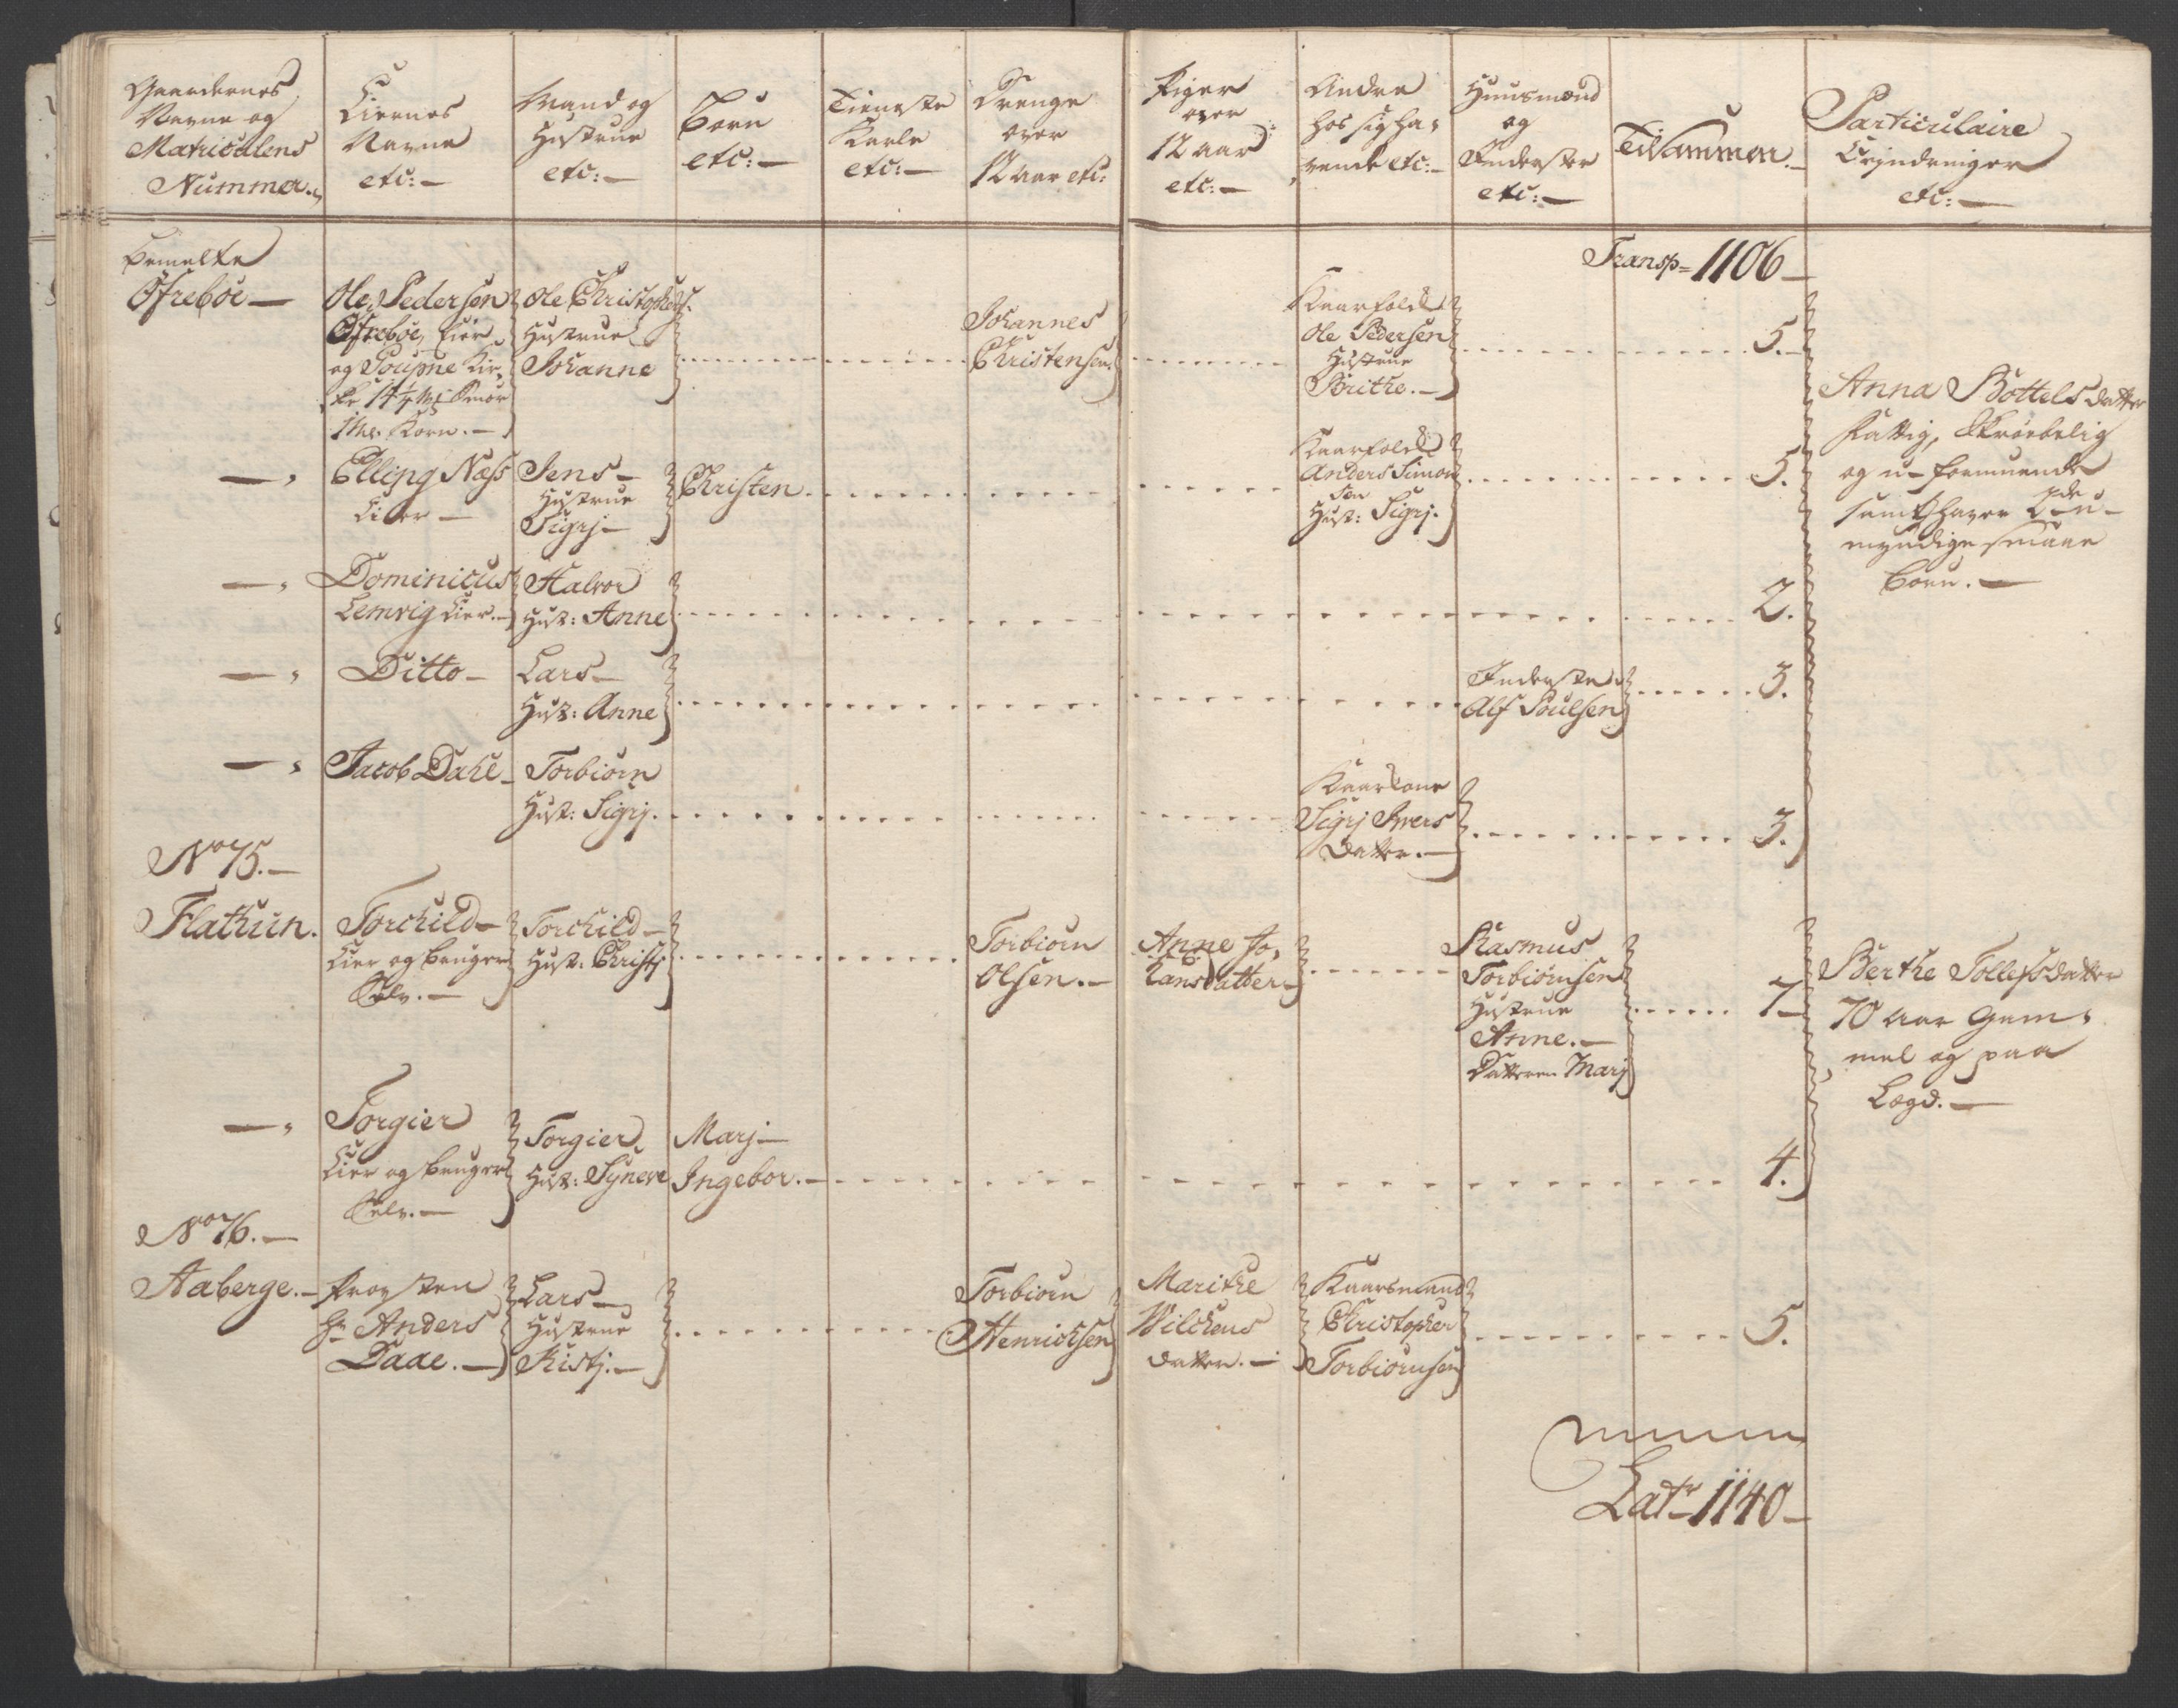 Gaardernes
Navne og
Matriculens
Nummer.
Eiernes
Navne
etc:
Mand og
Hustrue
etc:
Börn
etc:
Tieneste
Karle
etc:
Drenge
over
12 aar etc:
Piger
over
12 aar
etc:
Andre
hos sig ha-
vende etc:
Huusmænd
og
Inderster
etc:
Tilsammen.
Particulaire
Erindringer
etc:
Bemelte
Öfreböe
Ole Pedersen
Öfreböe, Eier
og Joupne Kir-
1 Mr. Korn.
Ole Christophers.
Hustrue
Johanne
Johannes
Christensen
Kaarfolk
Ole Pedersen
Hustrue
Brithe.
Transp= 1106
5.
Anna Bottelsdatter
fattig, skröbelig
og u-formuende
samt haver
myndige smaae
Börn.
Elling Næss
Eier
Jens
Hustrue
Sigrj
Christen
Kaarfolk
Anders Simon
sen
Hust: Sigrj.
5.
Dominicus
Lemvig Eier.
Halvor
Hust: Anne
2.
Ditto
Lars
Hust: Anne
Inderste
Alf Poulsen
3.
Jacob Dahl
Torbiörn
Hust: Sigrj.
Kaarkone
Sigrj Ivers
datter.
3.
No 75.
Flathun.
Torchild
Eier og bruger
Selv.
Torchild
Hust: Christj
Torbiörn
Olsen.
Anne Jo-
hansdatter
Rasmus
Torbiörnsen
Hustrue
Anne.
Datteren Marj
7
Berthe Tollefsdatter
70 Aar Gam-
mel og paa
Lægd.
Torgier
Eier og bruger
Selv.
Torgier
Hust: Syneve
Marj
Ingebor.
4.
No 76.
Aaberge.
Provsten
Hr Anders
Daae.
Lars
Hustrue
Kistj.
Torbiörn
Henrichsen
Marithe
Wilchens
datter.
Kaarmand
Christopher
Torbiörnsen
5.
Latr 1140